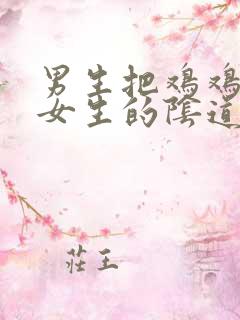 男生把鸡鸡
女生的陰道
莊王